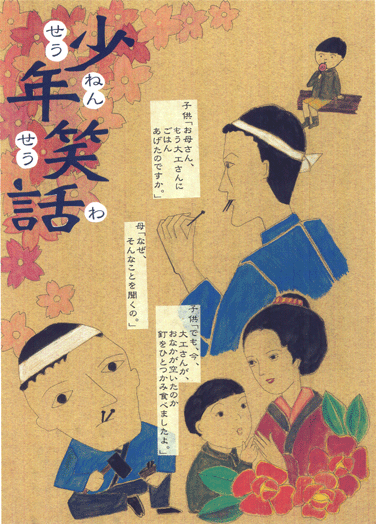 少年笑話
せう
ねん
せう
わ
子供「お母さん、
もう大工さんに
ごはん
あげたのですか。」
母「なぜ、
そんなことを聞くの。」
子供「でも、今、
大工さんが、
おなかが空いたのか
釘をひとつかみ食べましたよ。」